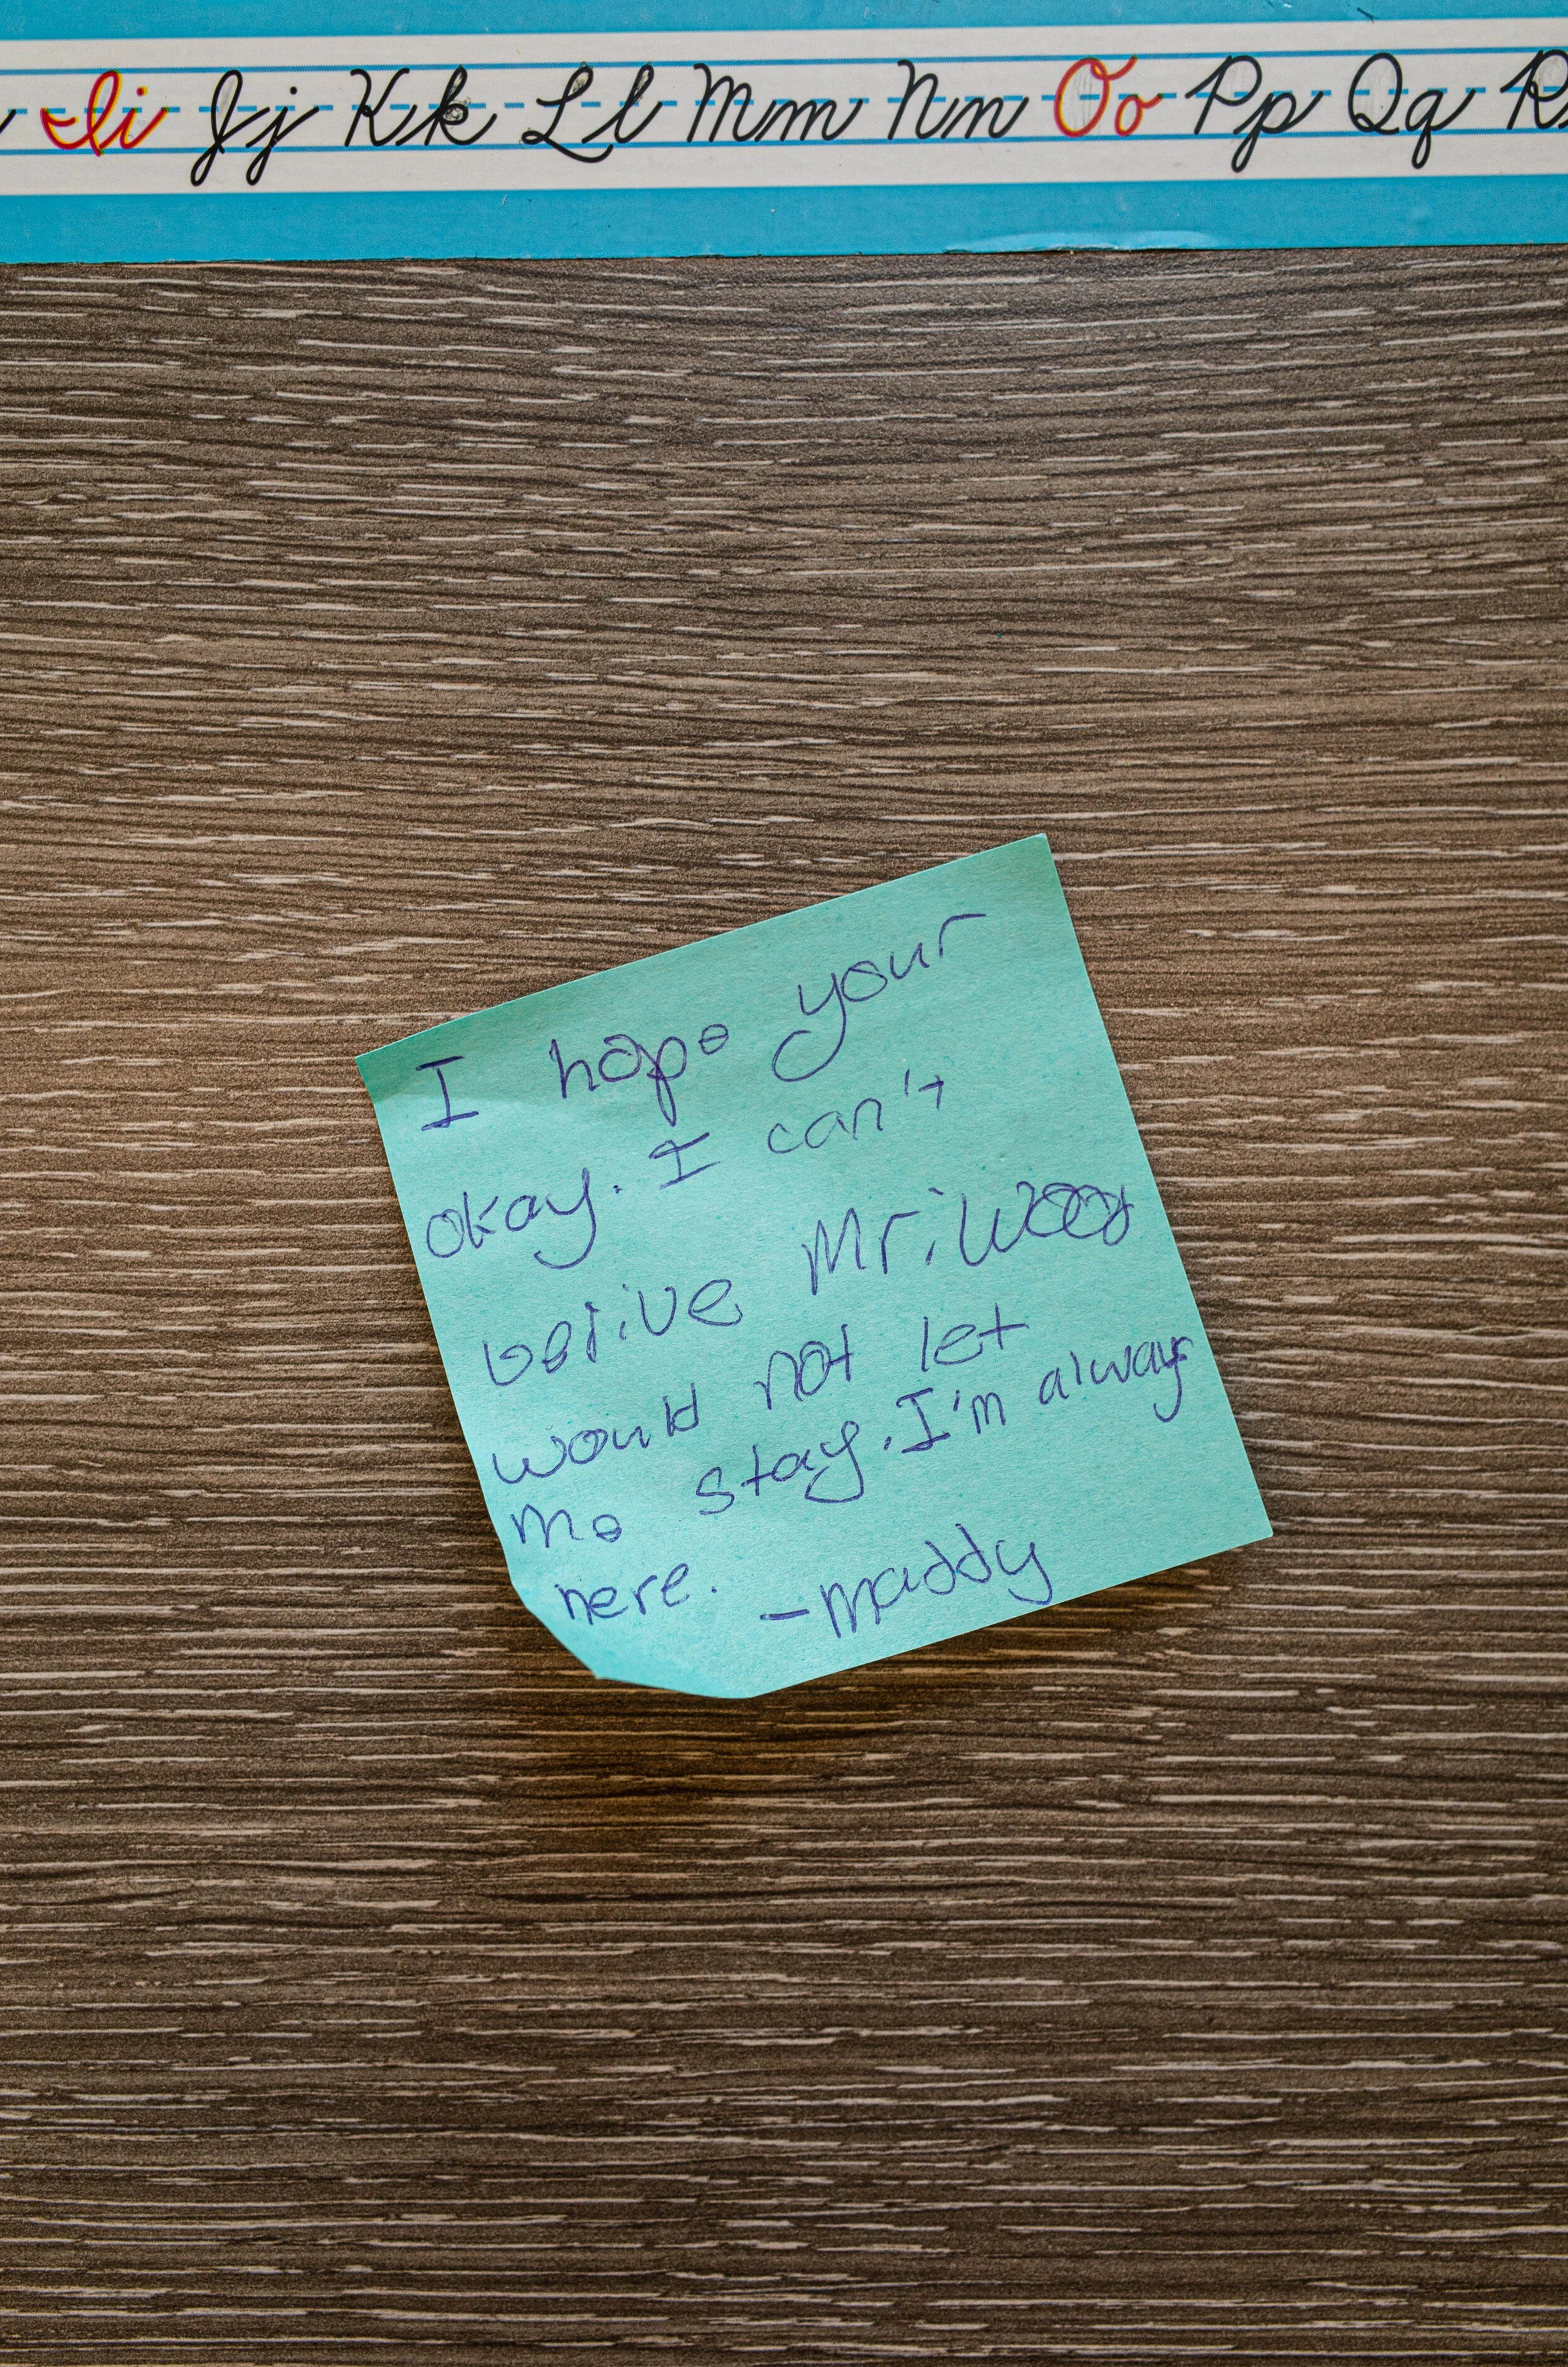 Ii Jj Kk Ll Mm Nn Oo Pp Qq R
I hope your
okay. I can't
belive Mr. Woo
would not let
me stay. I'm always
here. -maddy